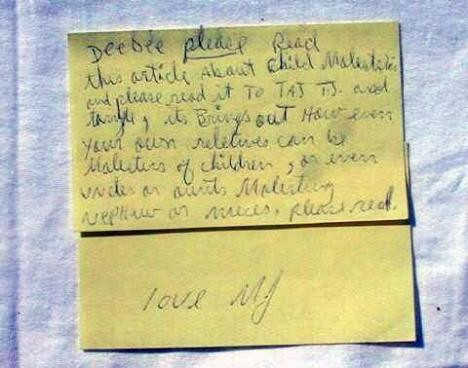 DeeDee please Read
this article About Child Molestation
and please read it TO TAJ T.J. and
taryll, its Brings out How even
your own reletives can be
Molestors of children, or even
uncles or aunts Molesting
nephew or nieces. please read.
love MJ